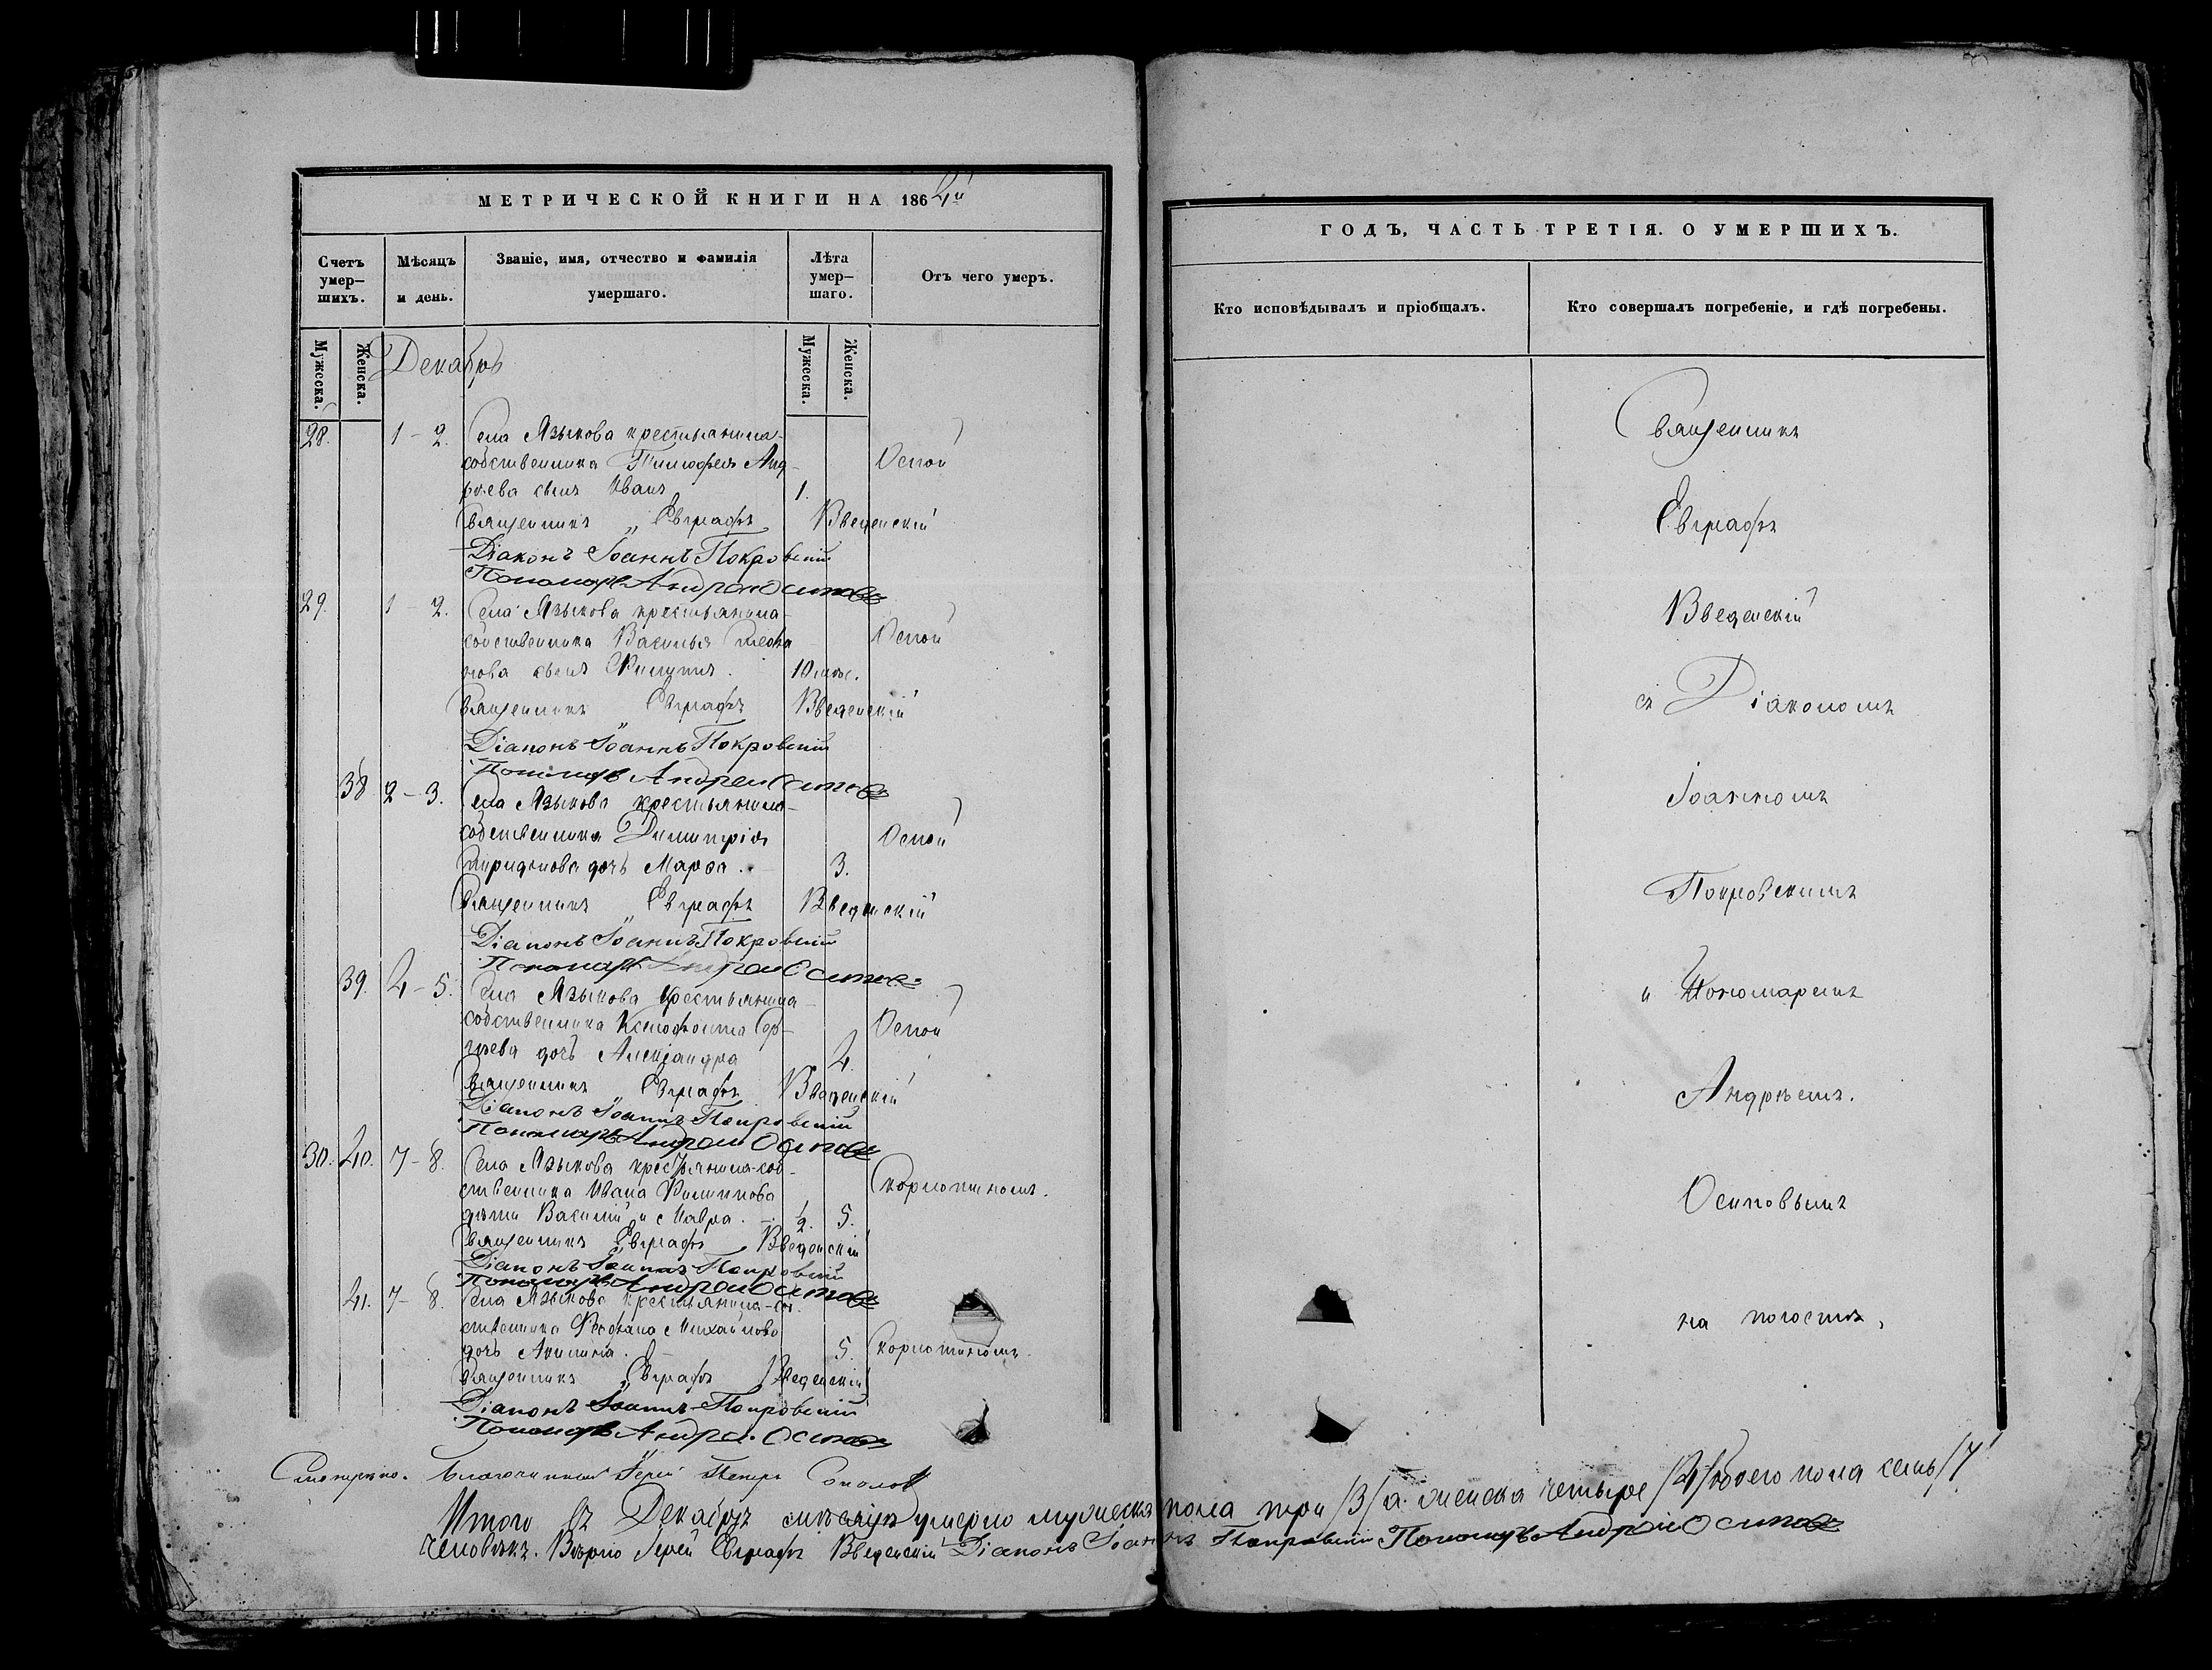 МЕТРИЧЕСКОЙ КНИГИ НА 1864й
Счетъ умер-шихъ.
Мѣсяцъ и день.
Званіе, имя, отчество и фамилія умершаго.
Лѣта умер-шаго.
Отъ чего умеръ.
Мужеска.
Женска.
Мужеска.
Женска.
Декабрь
28. 1-2. Села Языкова крестьянина-
собственника Тимофея Анд- Оспой
реева сынъ Иванъ 1.
Священникъ Евграфъ Введенскій
Діаконъ Іоаннъ Покровскій
Пономарь Андрей Осиповъ
29. 1-2. Села Языкова крестьянина-
собственника Василья Оспой
нова сынъ Филиппъ. 10 мѣс.
Священникъ Евграфъ Введенскій
Діаконъ Іоаннъ Покровскій
Пономарь Андрей Осиповъ
38 2-3. Села Языкова крестьянина-
собственника Димитрія Оспой
Спиридонова дочь Марѳа. 3.
Священникъ Евграфъ Введенскій
Діаконъ Іоаннъ Покровскій
Пономарь Андрей Осиповъ
39. 4-5. Села Языкова крестьянина-
собственника Ксенофонта Сер- Оспой
гѣева дочь Александра 4.
Священникъ Евграфъ Введенскій
Діаконъ Іоаннъ Покровскій
Пономарь Андрей Осиповъ
30. 40. 7-8. Села Языкова крестьянина-соб-
ственника Ивана Филиппова Скорлотиномъ.
дѣти Василій и Мавра. 1/2. 5.
Священникъ Евграфъ Введенскій
Діаконъ Іоаннъ Покровскій
Пономарь Андрей Осиповъ
41. 7-8. Села Языкова крестьянина-соб.
ственника Ѳеофана Михайлова
дочь Акилина. 5. Скорлотиномъ.
Священникъ Евграфъ Введенскій
Діаконъ Іоаннъ Покровскій
Пономарь Андрей Осиповъ
Смотрено. Благочинный Іерей Петръ Соколовъ
ГОДЪ, ЧАСТЬ ТРЕТІЯ. О УМЕРШИХЪ.
Кто исповѣдывалъ и пріобщалъ.
Кто совершалъ погребеніе, и гдѣ погребены.
Священникъ
Евграфъ
Введенскій
съ Діакономъ
Іоанномъ
Покровскимъ
и Пономаремъ
Андрѣемъ.
Осиповымъ
на погостѣ.
Итого въ Декабрѣ мѣсяцѣ умерло мужеска пола три /3/ а женска четыре /4/ обоего пола семь /7/
человѣкъ. Вѣрно Іерей Евграфъ Введенскій Діаконъ Іоаннъ Покровскій Пономарь Андрей Осиповъ